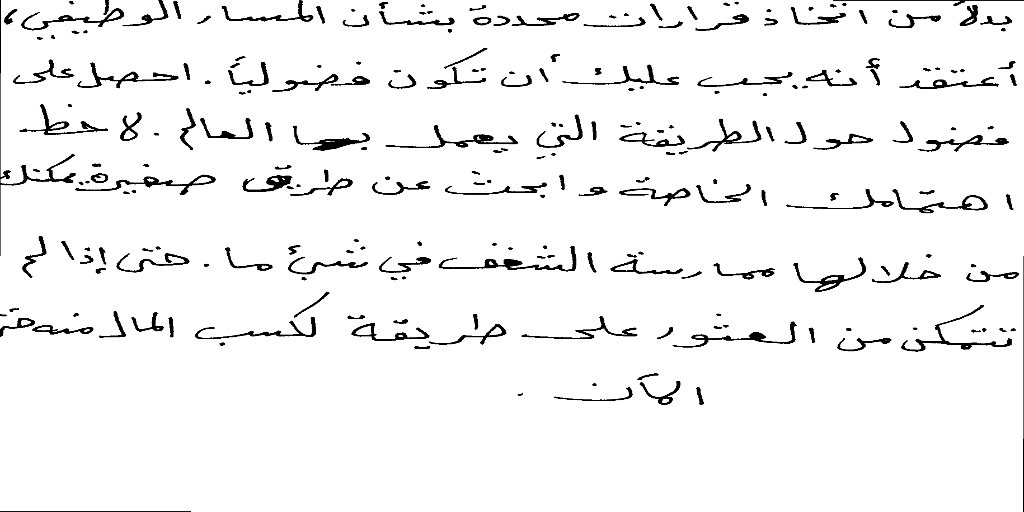 بدلاً من اتخاذ قرارات محددة بشأن المسار الوظيفي،
أعتقد أنه يجب عليك أن تكون فضولياً. احصل على
فضول حول الطريقة التي يعمل بها العالم. لاحظ
اهتمامك الخاصة وابحث عن طريق صغيرة يمكنك
من خلالها ممارسة الشغف في شيء ما. حتى إذا لم
تتمكن من العثور على طريقة لكسب المال منه حتى
الآن.